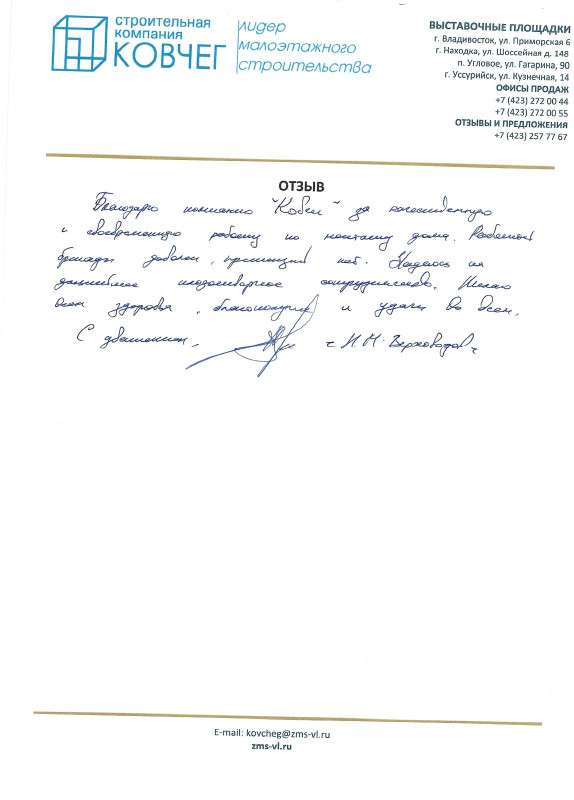 строительная
компания
КОВЧЕГ
лидер
малоэтажного
строительства
ВЫСТАВОЧНЫЕ ПЛОЩАДКИ
г. Владивосток, ул. Приморская 6
г. Находка, ул. Шоссейная д. 148
п. Угловое, ул. Гагарина, 90
г. Уссурийск, ул. Кузнечная, 14
ОФИСЫ ПРОДАЖ
+7 (423) 272 00 44
+7 (423) 272 00 55
ОТЗЫВЫ И ПРЕДЛОЖЕНИЯ
+7 (423) 257 77 67
ОТЗЫВ
Благодарю компанию за качественную
и своевременную работу по монтажу дома. Работой
бригады доволен, претензий нет. Надеюсь на
дальнейшее плодотворное сотрудничество. Желаю
всем здоровья, благополучия и удачи во всём.
С уважением,
E-mail: kovcheg@zms-vl.ru
zms-vl.ru